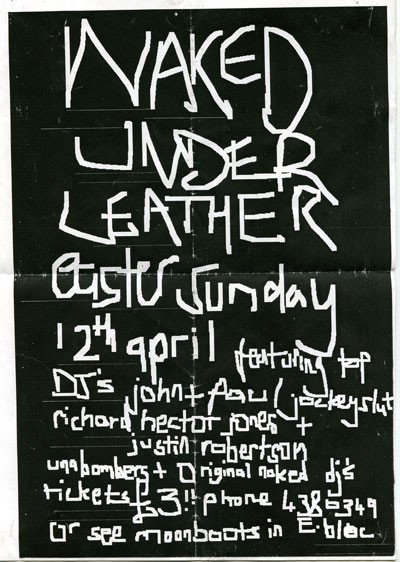 NAKED
UNDER
LEATHER
Easter Sunday
12th april featuring top
DJ's john + Paul (jockeyslut
richard hector jones +
justin robertson
unabombers + Original naked dj's
tickets £3!! phone
Or see moonboots in E-bloc